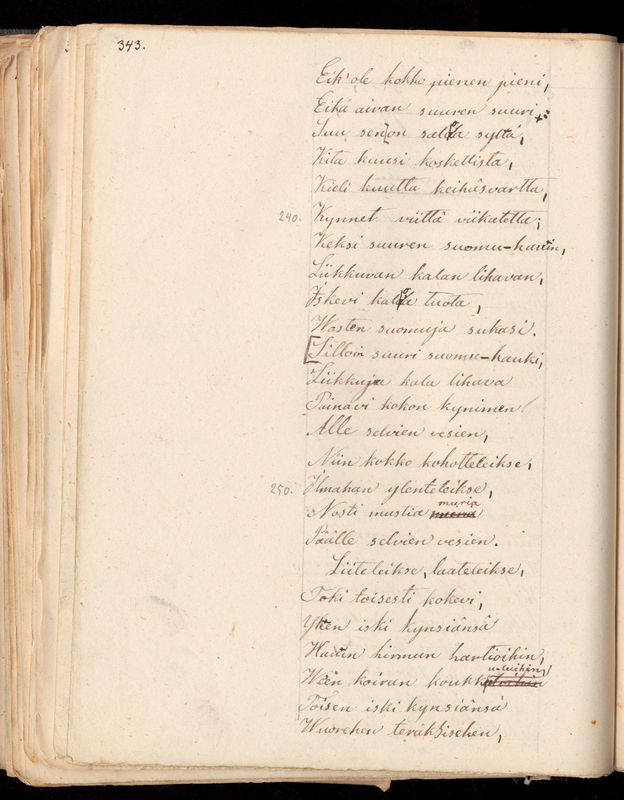 343.
Eik' ole kokko pienen pieni,
Eikä aivan suuren suuri
Suu sen on sataa syltä,
Kita kuusi koskellista,
Kieli kuutta keihäsvartta,
240. Kynnet viittä viikatetta;
Keksi suuren suomu-hauin,
Liikkuvan kalan lihavan,
Iskevi kaloa tuota,
Wasten suomuja suhasi.
[Silloin suuri suomu-hauki,
Liikkuja kala lihava
Painavi kokon kynimen
Alle selvien vesien,
Niin kokko kohotteleikse,
250. Ilmahan ylenteleikse,
Nosti mustia muria
Päälle selvien vesien.
Liiteleikse, laateleikse,
Toki toisesti kokevi,
Yhen iski kynsiänsä
Hauin hirmun hartioihin,
Ween koiran koukkuluihin,
Toisen iski kynsiänsä
Wuorehen teräksisehen,